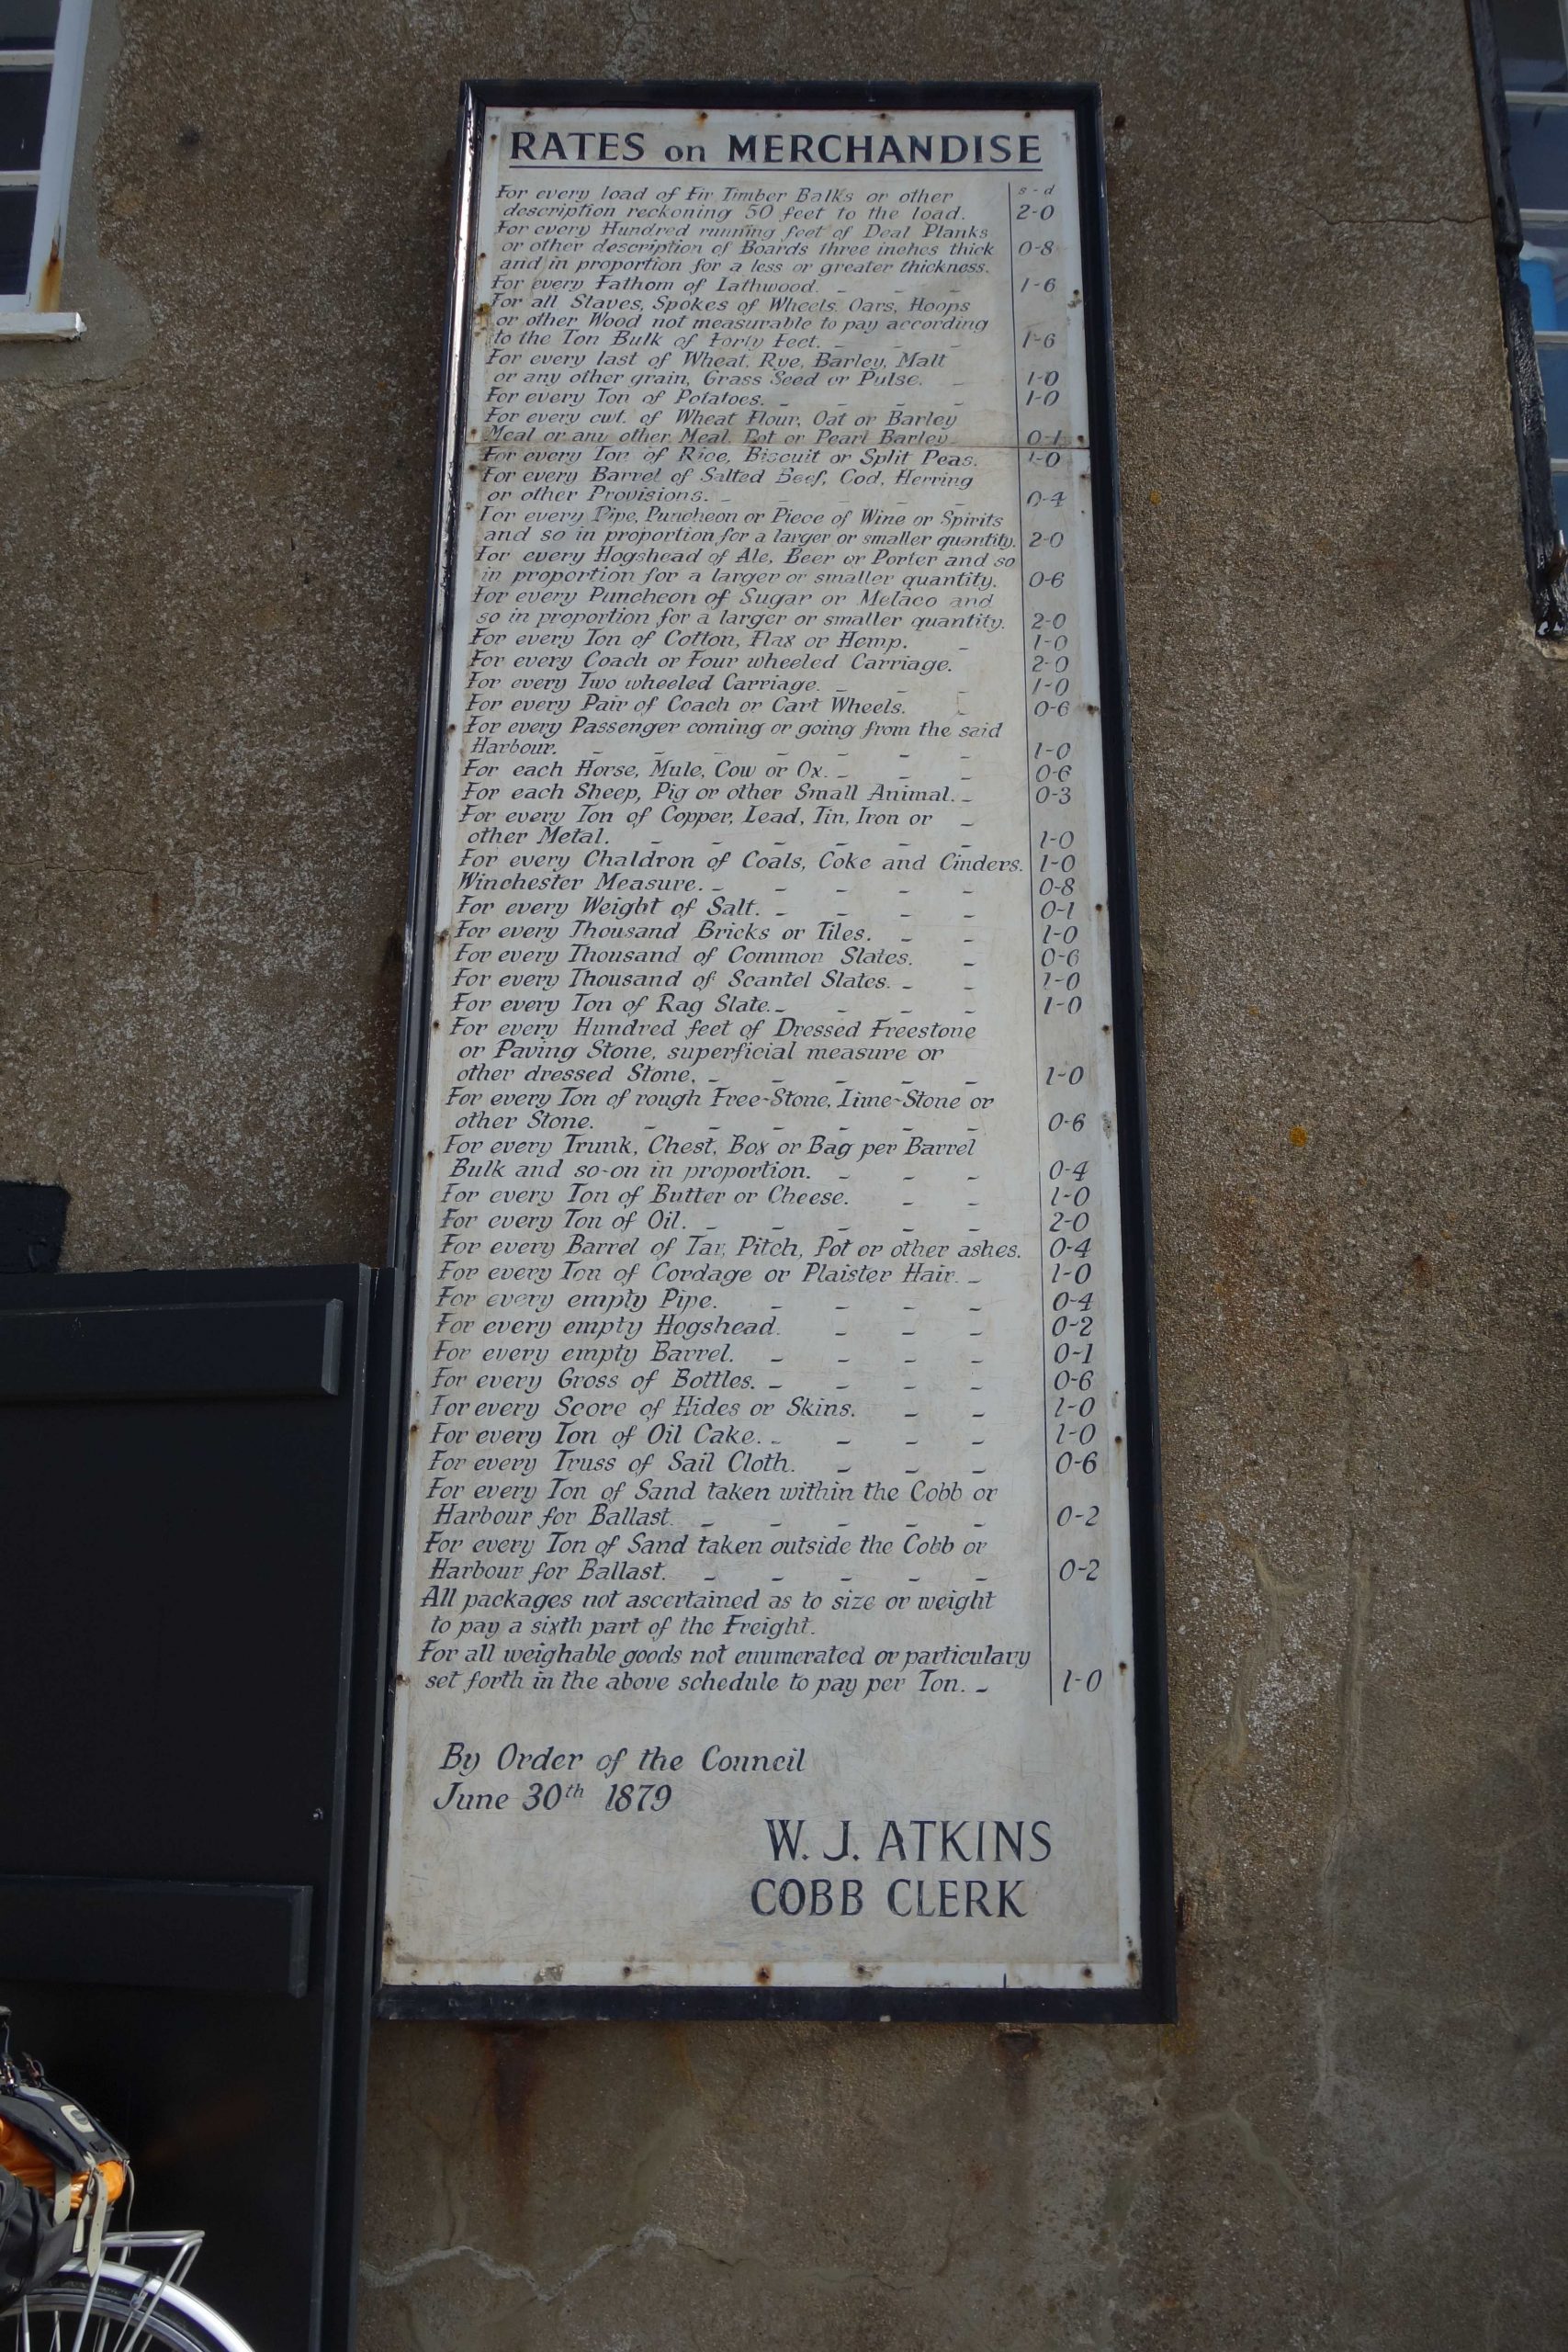 RATES on MERCHANDISE
s - d
For every load of Fir Timber Balks or other
description reckoning 50 feet to the load. 2-0
For every Hundred running feet of Deal Planks
or other description of Boards three inches thick 0-8
and in proportion for a less or greater thickness.
For every Fathom of Lathwood. - - - 1-6
For all Staves, Spokes of Wheels, Oars, Hoops
or other Wood not measurable to pay according
to the Ton Bulk of Forty Feet. - - - 1-6
For every last of Wheat, Rye, Barley, Malt
or any other grain, Grass Seed or Pulse. - 1-0
For every Ton of Potatoes. - - - - 1-0
For every cwt. of Wheat Flour, Oat or Barley
Meal or any other Meal, Pot or Pearl Barley. 0-1
For every Ton of Rice, Biscuit or Split Peas. 1-0
For every Barrel of Salted Beef, Cod, Herring
or other Provisions. - - - - - 0-4
For every Pipe, Puncheon or Piece of Wine or Spirits
and so in proportion for a larger or smaller quantity. 2-0
For every Hogshead of Ale, Beer or Porter and so
in proportion for a larger or smaller quantity. 0-6
For every Puncheon of Sugar or Melaco and
so in proportion for a larger or smaller quantity. 2-0
For every Ton of Cotton, Flax or Hemp. - 1-0
For every Coach or Four wheeled Carriage. 2-0
For every Two wheeled Carriage. - - - 1-0
For every Pair of Coach or Cart Wheels. - 0-6
For every Passenger coming or going from the said
Harbour. - - - - - - 1-0
For each Horse, Mule, Cow or Ox. - - - 0-6
For each Sheep, Pig or other Small Animal. - 0-3
For every Ton of Copper, Lead, Tin, Iron or -
other Metal. - - - - - - 1-0
For every Chaldron of Coals, Coke and Cinders. 1-0
Winchester Measure. - - - - - 0-8
For every Weight of Salt. - - - - 0-1
For every Thousand Bricks or Tiles. - - 1-0
For every Thousand of Common Slates. - 0-6
For every Thousand of Scantel Slates. - - 1-0
For every Ton of Rag Slate. - - - - 1-0
For every Hundred feet of Dressed Freestone
or Paving Stone, superficial measure or
other dressed Stone. - - - - - 1-0
For every Ton of rough Free-Stone, Lime-Stone or
other Stone. - - - - - - 0-6
For every Trunk, Chest, Box or Bag per Barrel
Bulk and so-on in proportion. - - - 0-4
For every Ton of Butter or Cheese. - - 1-0
For every Ton of Oil. - - - - - 2-0
For every Barrel of Tar, Pitch, Pot or other ashes. 0-4
For every Ton of Cordage or Plaister Hair. - 1-0
For every empty Pipe. - - - - 0-4
For every empty Hogshead. - - - 0-2
For every empty Barrel. - - - - 0-1
For every Gross of Bottles. - - - - 0-6
For every Score of Hides or Skins. - - 1-0
For every Ton of Oil Cake. - - - - 1-0
For every Truss of Sail Cloth. - - - 0-6
For every Ton of Sand taken within the Cobb or
Harbour for Ballast. - - - - - 0-2
For every Ton of Sand taken outside the Cobb or
Harbour for Ballast. - - - - - 0-2
All packages not ascertained as to size or weight
to pay a sixth part of the Freight.
For all weighable goods not enumerated or particulary
set forth in the above schedule to pay per Ton. - 1-0
By Order of the Council
June 30th 1879
W. J. ATKINS
COBB CLERK